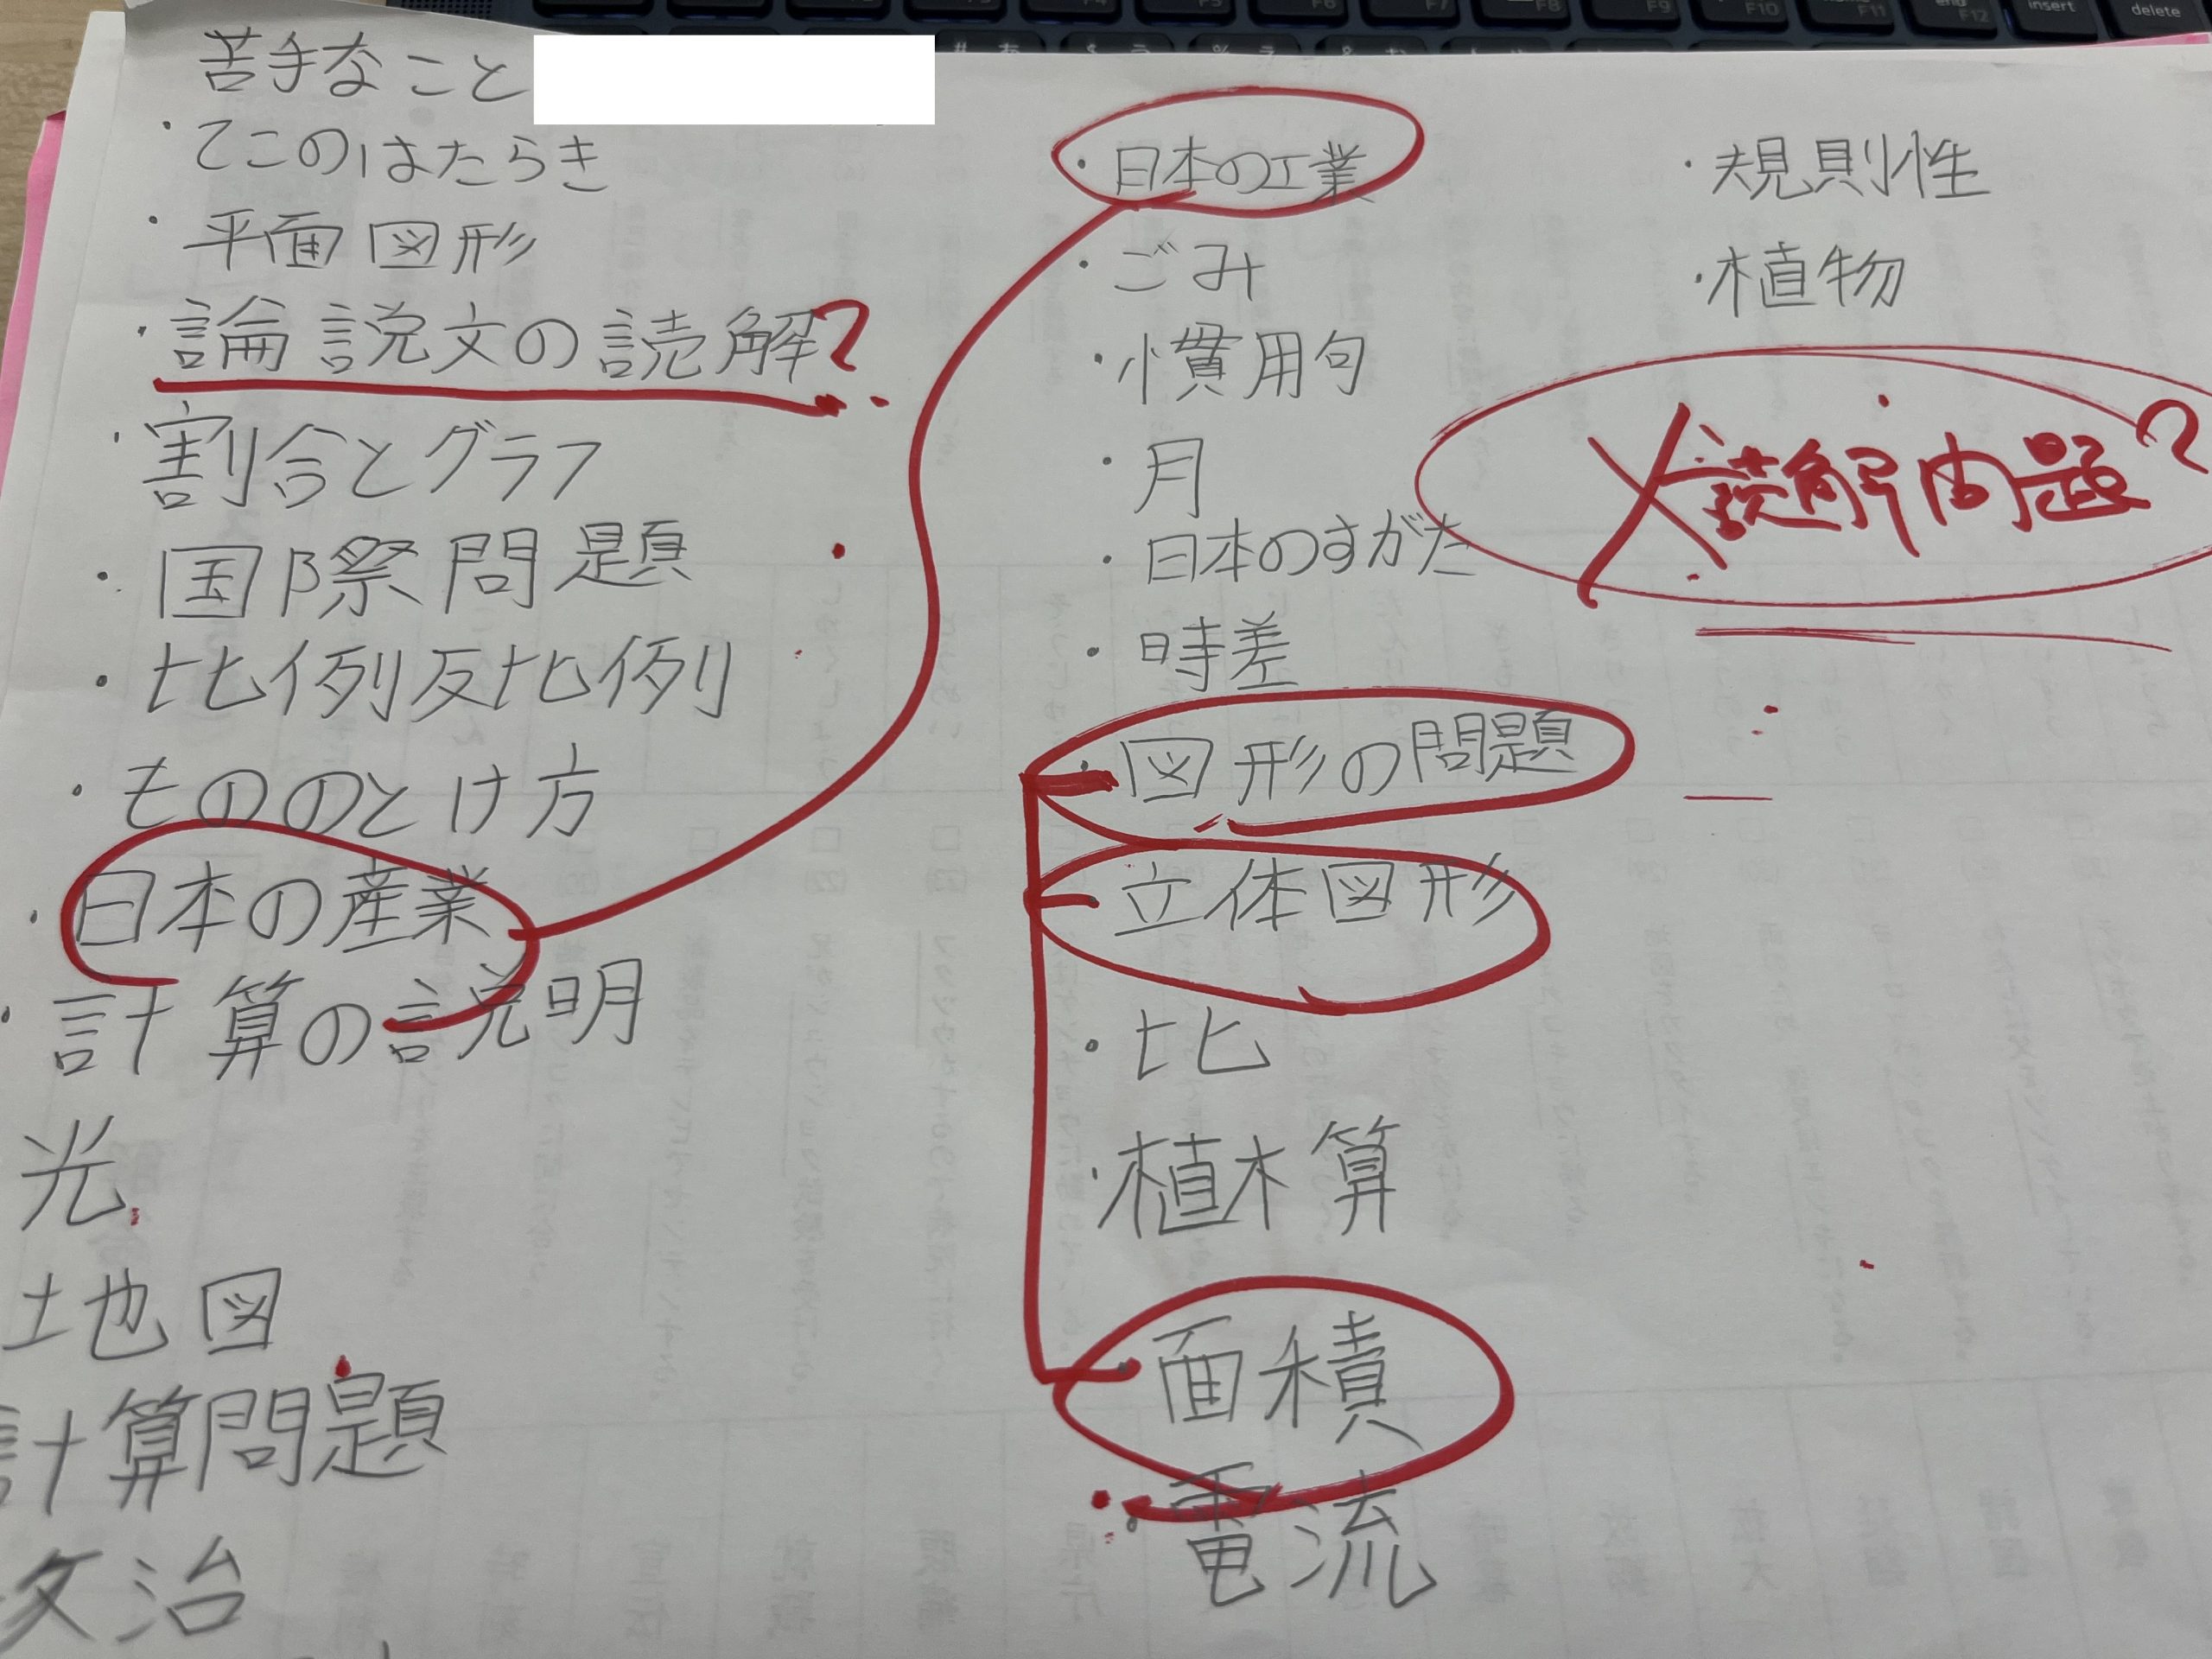 苦手なこと
・てこのはたらき
・平面図形
・論説文の読解?
・割合とグラフ
・国際問題
・比例反比例
・もののとけ方
・日本の産業
・計算の説明
光
地図
計算問題
治
・日本の工業
・ごみ
・慣用句
・月
・日本のすがた
・時差
・図形の問題
・立体図形
・比
・植木算
・面積
・電流
・規則性
・植物
読解問題?
F6
F7
F8
F9
F10
F11
end
F12
insert
delete